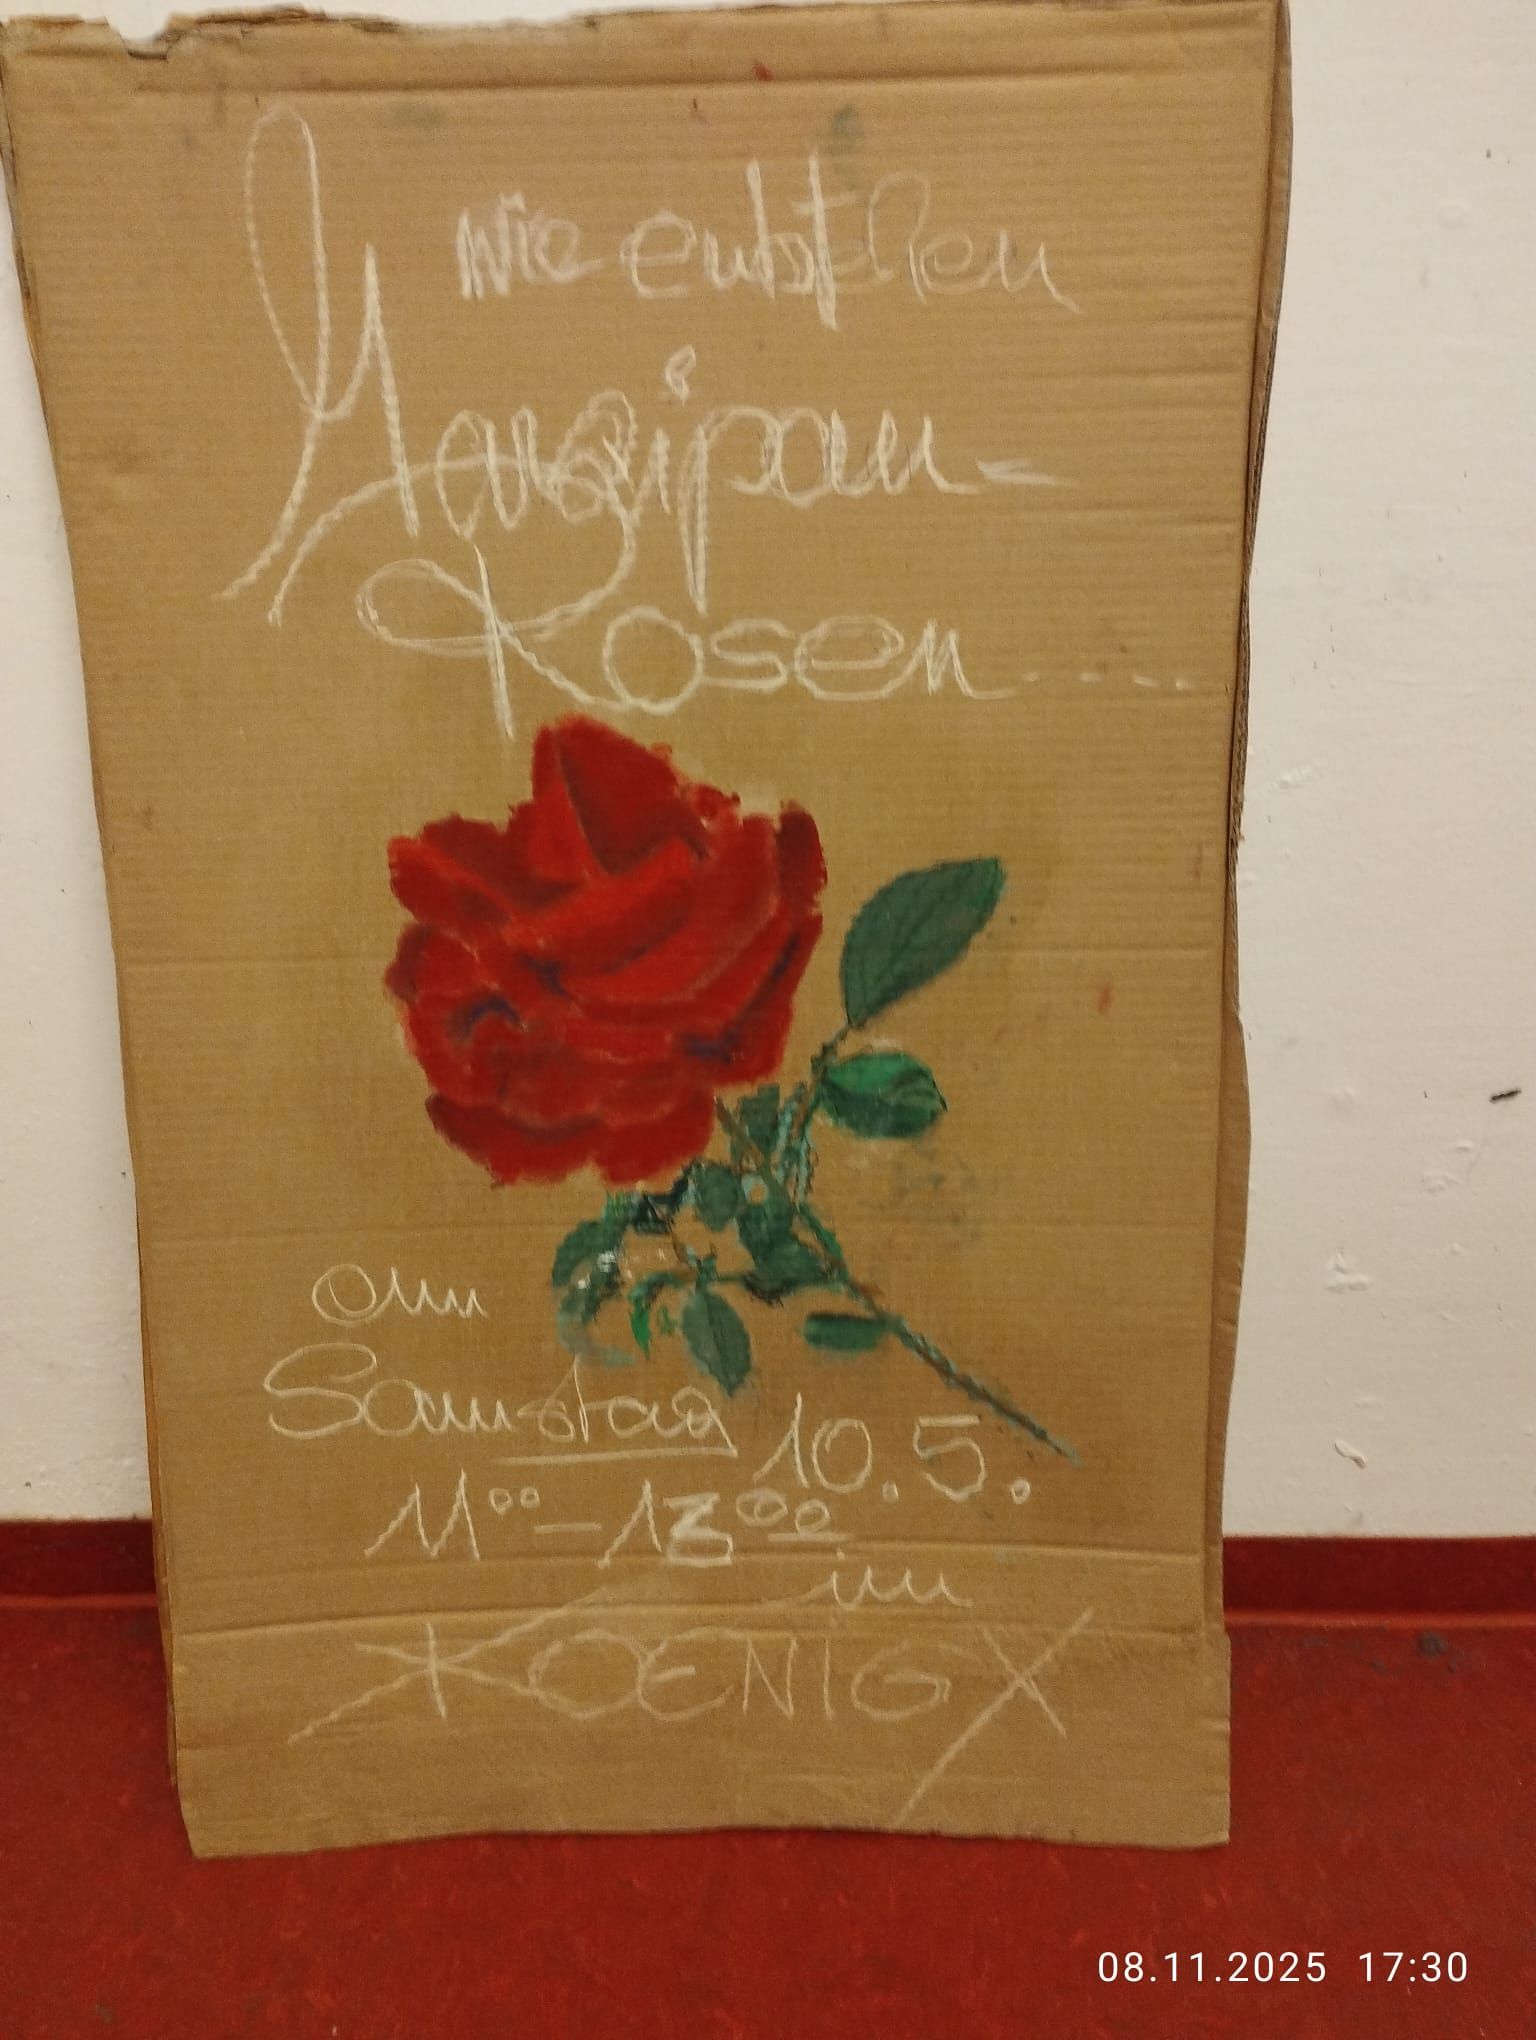 wie entstehen
Marzipan-
Rosen.....
am
Samstag 10.5.
11°° - 13°°
im
KOENIGX
08.11.2025 17:30